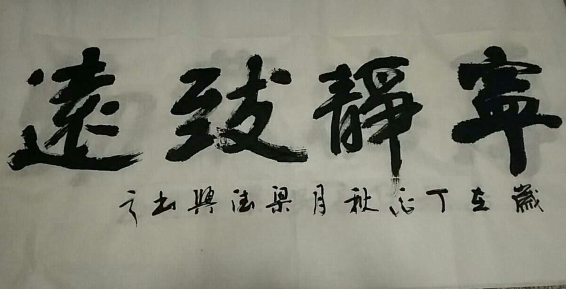 寧靜致遠
歲在丁酉秋月梁德興書之